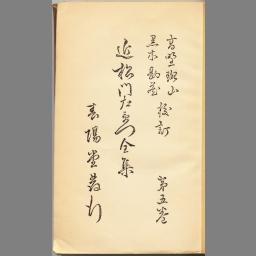 高野班山
黒木勘蔵 校訂
第五巻
近松門左衛門全集
春陽堂発行